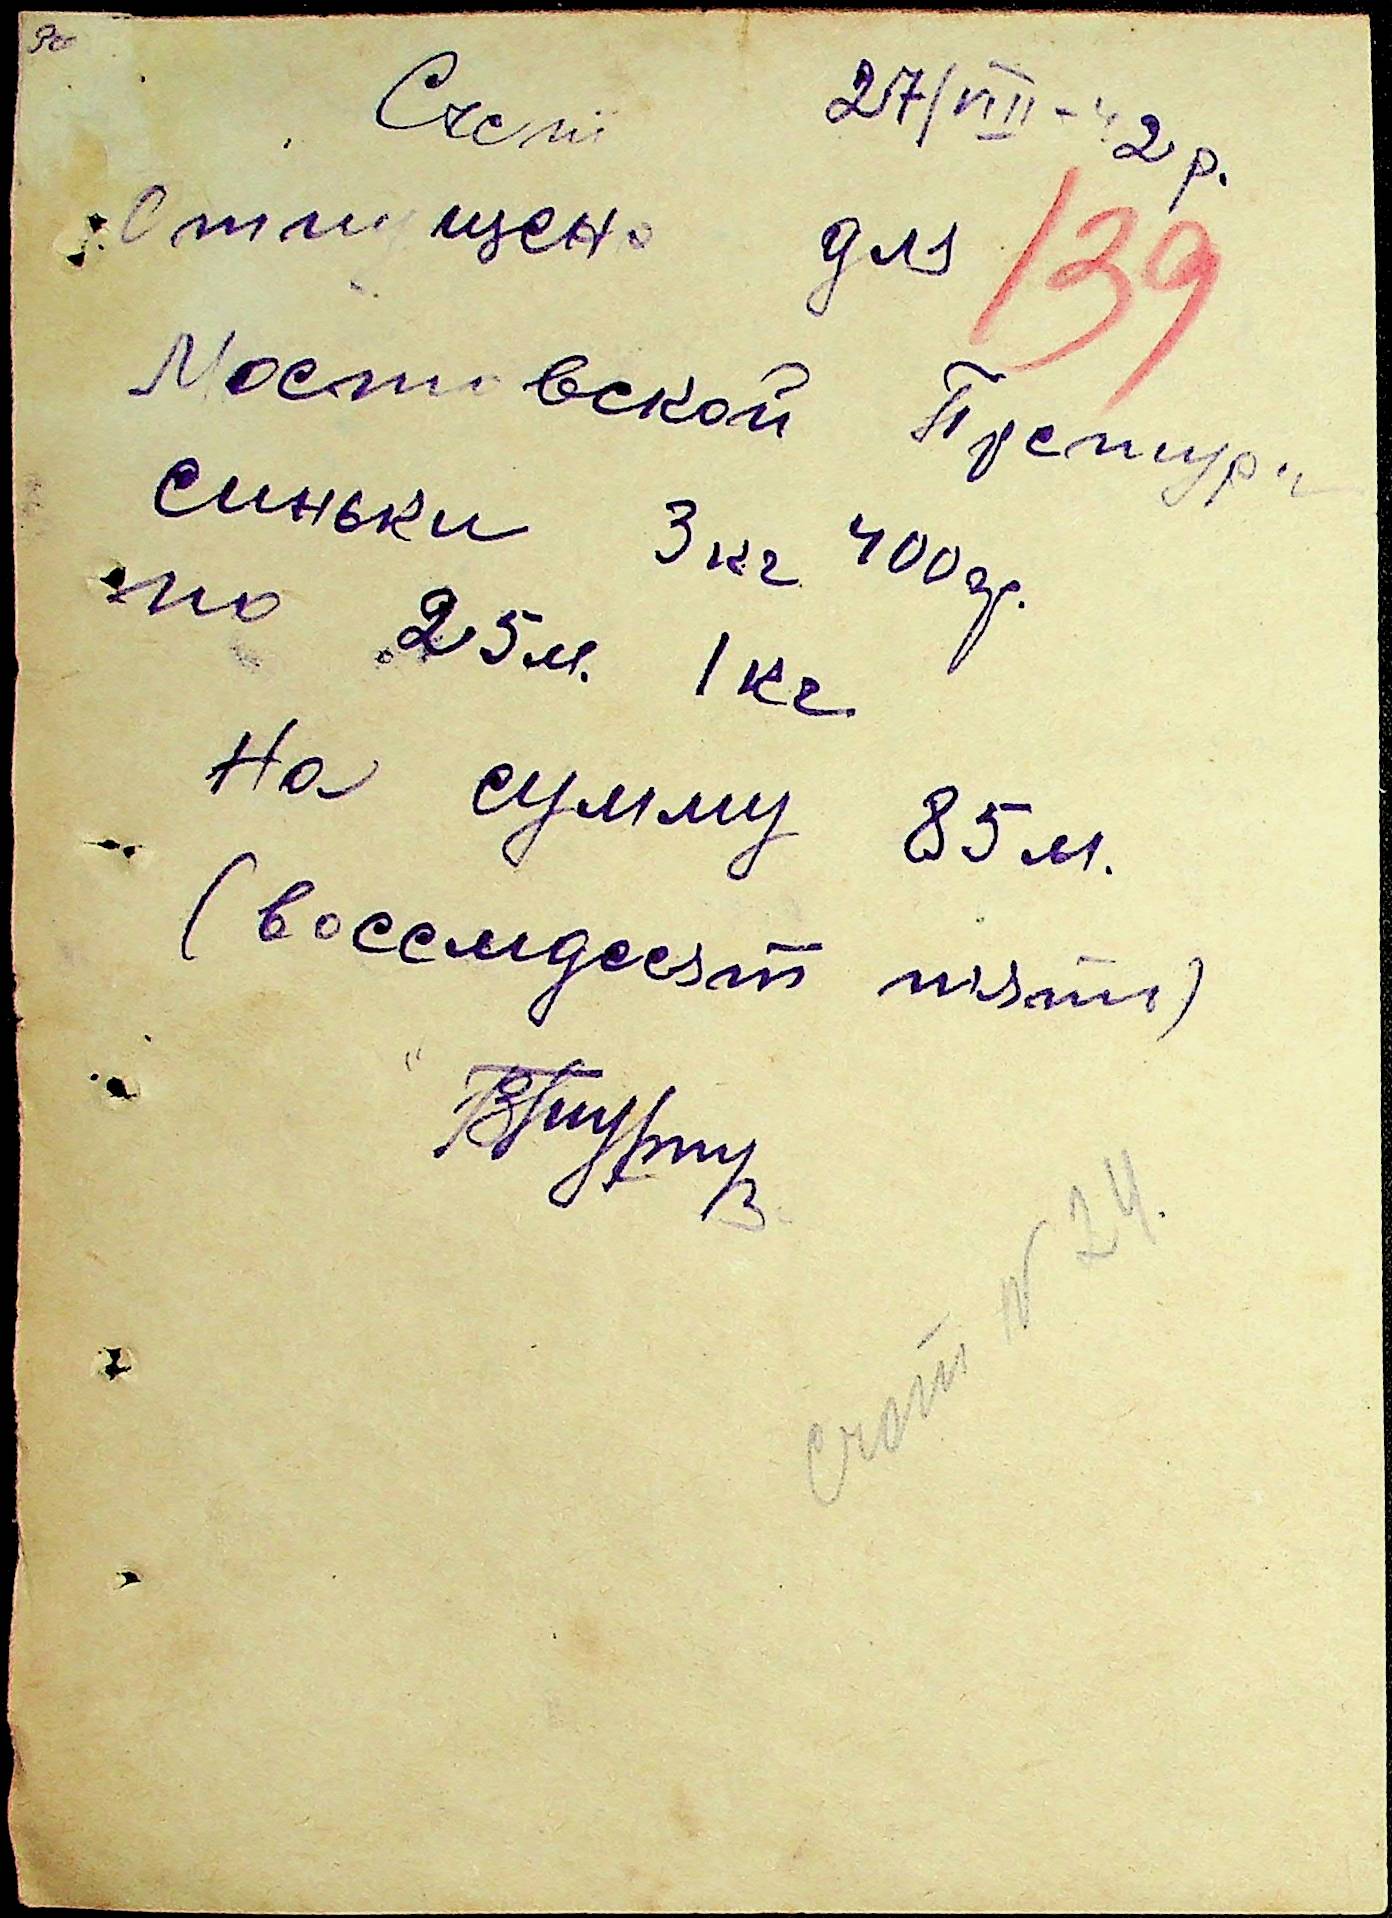 Счет 27/VIII-42 р.
Отпущено для
139
Мостовской Претури
синьки 3 кг 400 гр.
по 25 м. 1 кг.
На сумму 85 м.
(восемдесят пять)
Счет № 24.